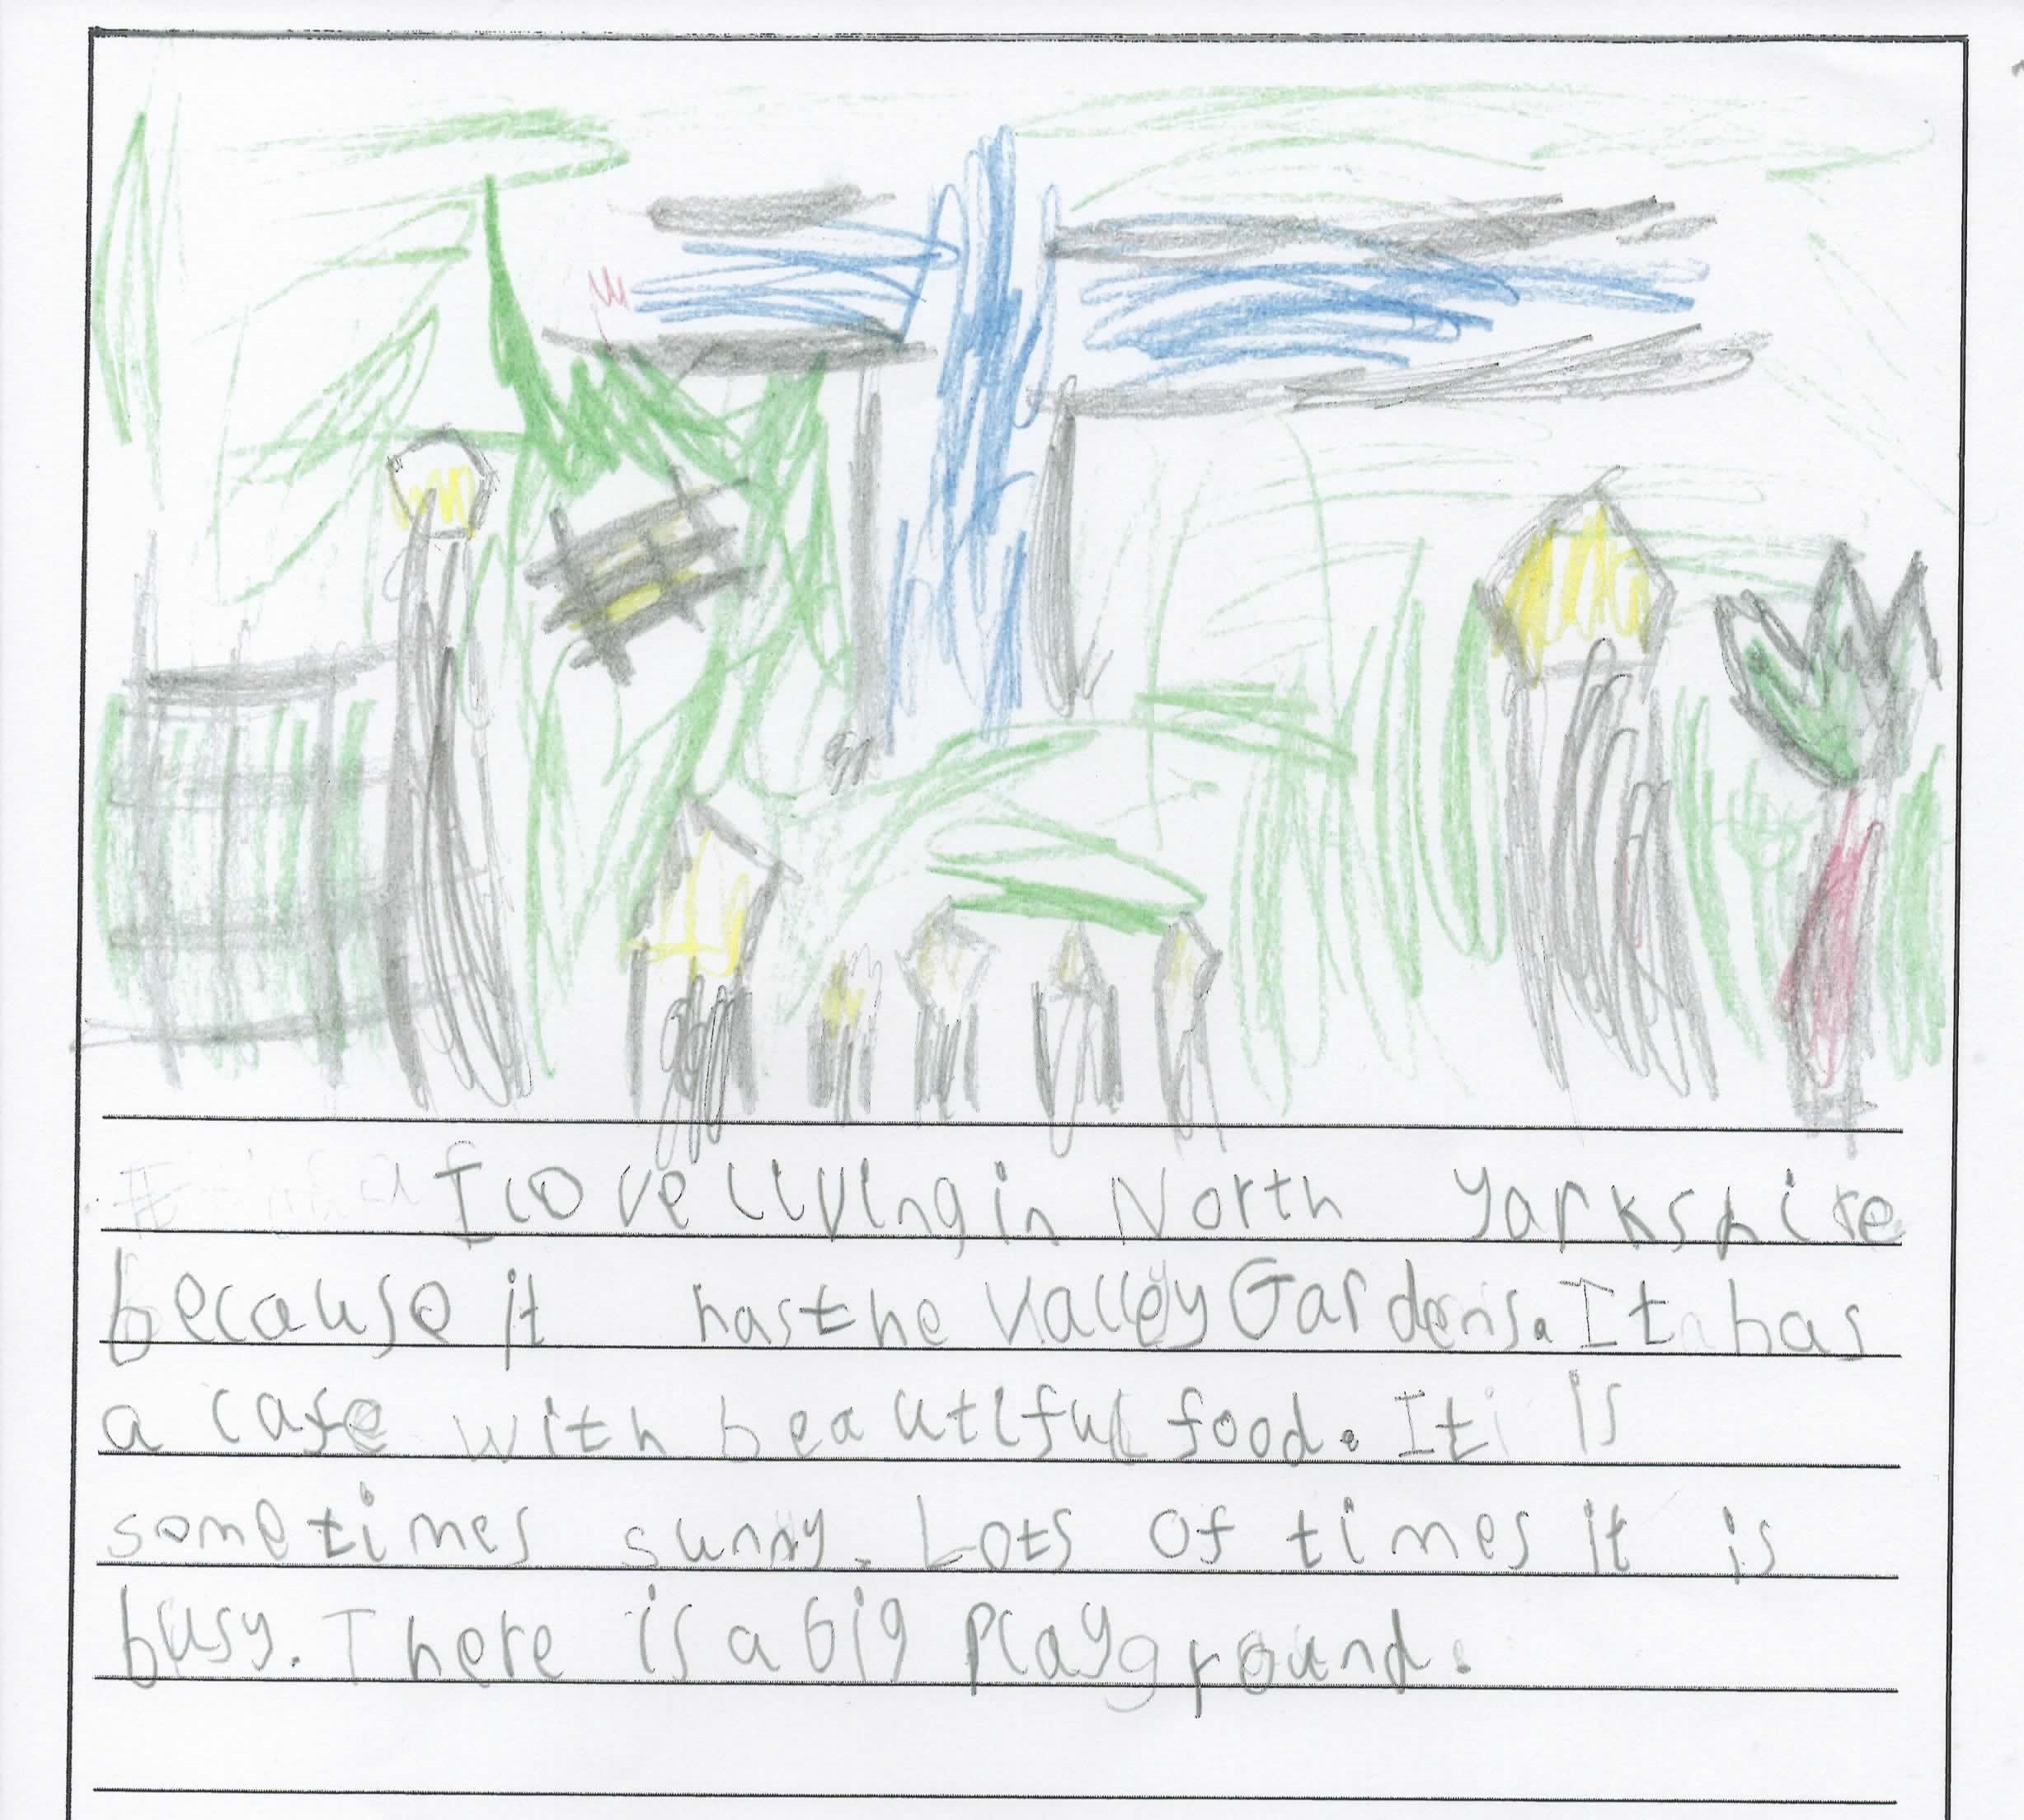 I love living in North Yorkshire
because it has the Valley Gardens. It has
a cafe with beautiful food. It is
sometimes sunny. Lots of times it is
busy. There is a big playground.